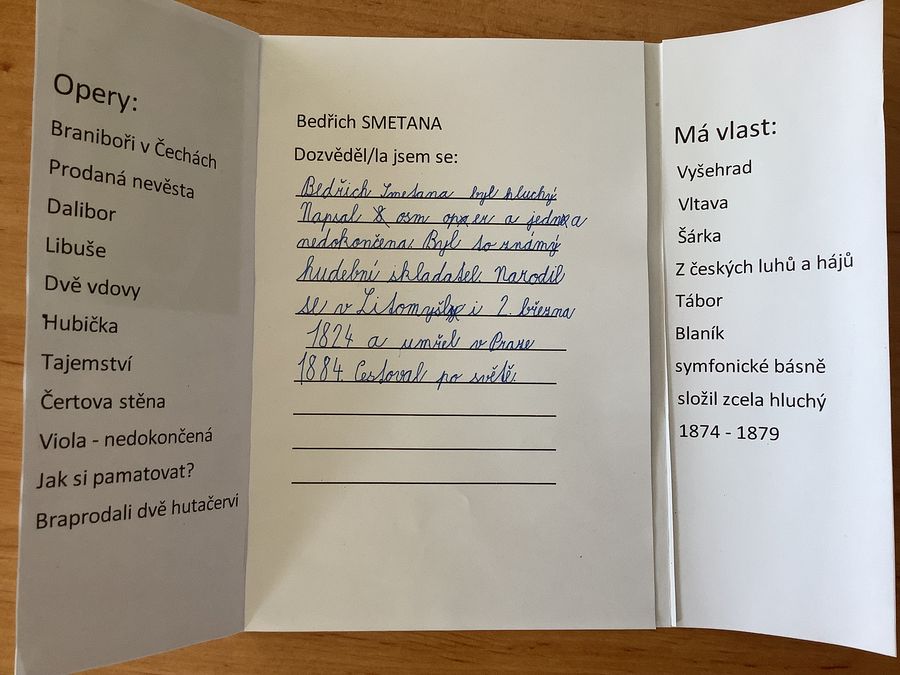 Opery:
Braniboři v Čechách
Prodaná nevěsta
Dalibor
Libuše
Dvě vdovy
Hubička
Tajemství
Čertova stěna
Viola - nedokončená
Jak si pamatovat?
Braprodali dvě hutačervi
Bedřich SMETANA
Dozvěděl/la jsem se:
Bedřich Smetana byl hluchý
Napsal osm oper a jedna
nedokončena. Byl to známý
hudební skladatel. Narodil
se v Litomyšli 2. března
1824 a umřel v Praze
1884. Cestoval po světě.
Má vlast:
Vyšehrad
Vltava
Šárka
Z českých luhů a hájů
Tábor
Blaník
symfonické básně
složil zcela hluchý
1874 - 1879